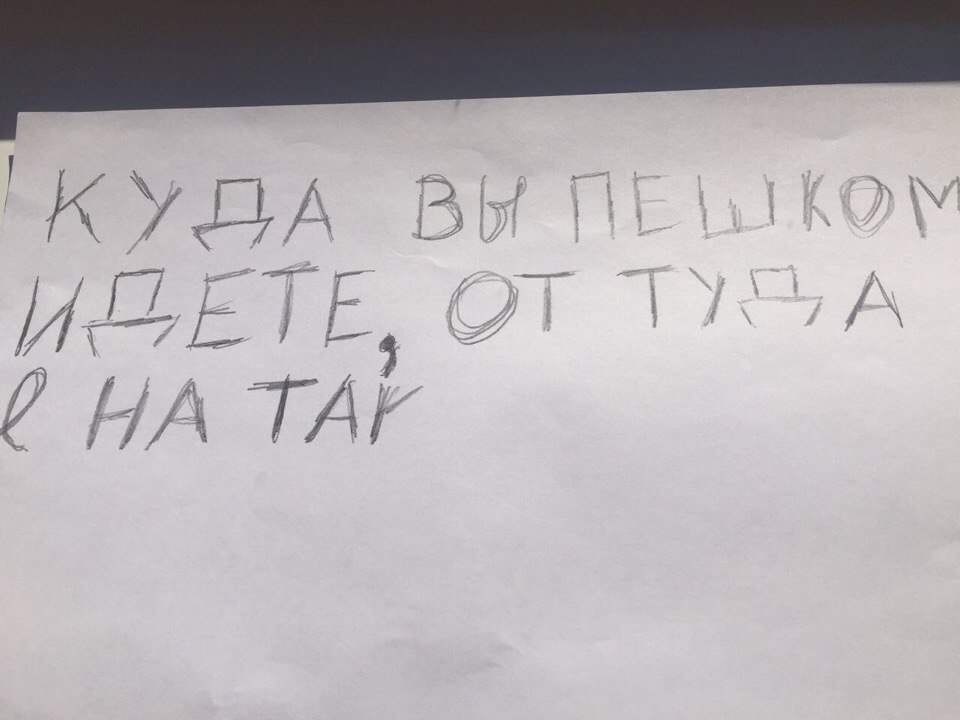 КУДА ВЫ ПЕШКОМ
ИДЕТЕ, ОТ ТУДА
е НА ТАК